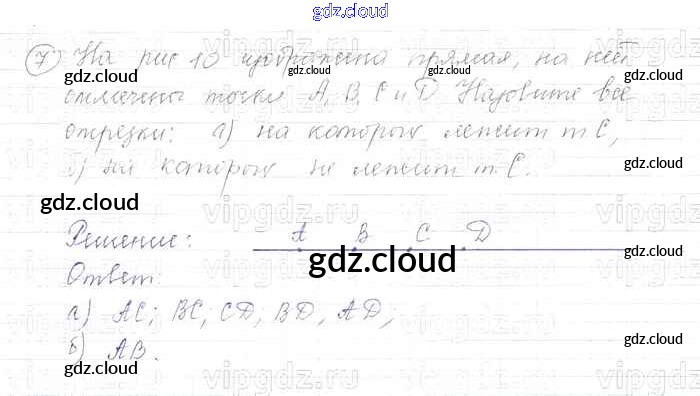 gdz.cloud
7) На рис 10 изображена прямая, на ней
отмечены точки A, B, C и D Назовите все
отрезки: а) на которых лежит т C,
б) на которых не лежит т. C.
Решение: A B C D
Ответ:
а) AC; BC; CD; BD, AD;
б) AB.
gdz.cloud
gdz.cloud
gdz.cloud
gdz.cloud
gdz.cloud
gdz.cloud
gdz.cloud
gdz.cloud
gdz.cloud
gdz.cloud
vipgdz.ru
vipgdz.ru
vipgdz.ru